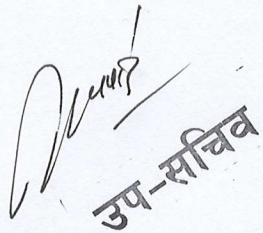 उप-सचिव